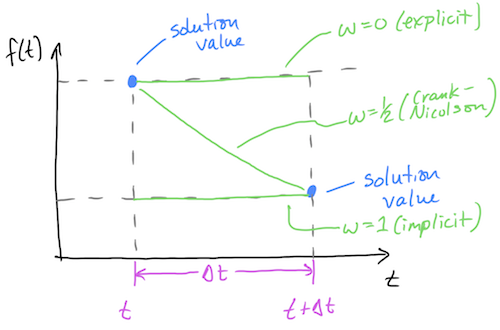 solution
value
w=0 (explicit)
f(t)
w=½ (Crank-
Nicolson)
solution
value
w=1 (implicit)
Δt
t
t
t+Δt